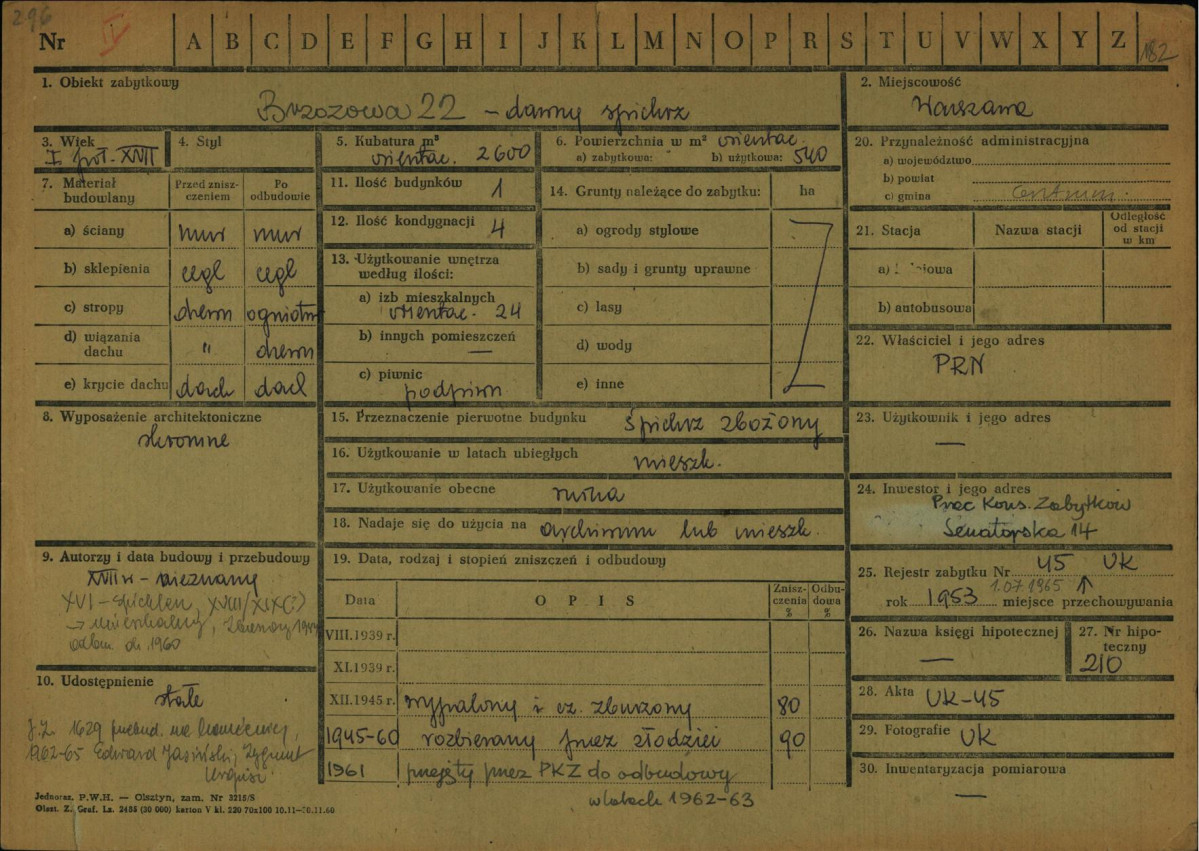 296
Nr IV A B C D E F G H I J K L M N O P R S T U V W X Y Z 182
1. Obiekt zabytkowy
Brzozowa 22 – dawny spichrz
2. Miejscowość
Warszawa
3. Wiek
I poł. XVII
4. Styl
5. Kubatura m³
orientac. 2600
6. Powierzchnia w m² orientac.
a) zabytkowa: b) użytkowa: 540
20. Przynależność administracyjna
a) województwo
b) powiat
c) gmina centrum
7. Materiał budowlany
Przed zniszczeniem
Po odbudowie
a) ściany mur mur
b) sklepienia cegl cegl
c) stropy drewn ogniotrw
d) wiązania dachu " drewn
e) krycie dachu dach dach
11. Ilość budynków 1
12. Ilość kondygnacji 4
13. Użytkowanie wnętrza
według ilości:
a) izb mieszkalnych
orientac. 24
b) innych pomieszczeń
—
c) piwnic
podpiwn
14. Grunty należące do zabytku: ha
a) ogrody stylowe
b) sady i grunty uprawne
c) lasy
d) wody
e) inne
21. Stacja Nazwa stacji Odległość od stacji w km
a)
b) autobusowa
22. Właściciel i jego adres
PRN
8. Wyposażenie architektoniczne
skromne
15. Przeznaczenie pierwotne budynku Śpichrz zbożony
16. Użytkowanie w latach ubiegłych mieszk.
17. Użytkowanie obecne ruina
18. Nadaje się do użycia na archiwum lub mieszk.
23. Użytkownik i jego adres
—
24. Inwestor i jego adres
Prac Kons. Zabytków
Senatorska 14
9. Autorzy i data budowy i przebudowy
XVII w – nieznany
XVI – spichlerz, XVIII/XIX (?)
→ mieszkalny, zburzony 1944
odbud. do 1960
19. Data, rodzaj i stopień zniszczeń i odbudowy
Data OPIS Zniszczenia % Odbudowa %
VIII.1939 r.
XI.1939 r.
XII.1945 r. wypalony i cz. zburzony 80
1945-60 rozbierany przez złodziei 90
1961 przejęty przez PKZ do odbudowy
w latach 1962-63
25. Rejestr zabytku Nr 45 UK
1.07.1965
rok 1953 miejsce przechowywania
26. Nazwa księgi hipotecznej
—
27. Nr hipoteczny
210
10. Udostępnienie
stałe
1629 przebud. na kamienicę,
1962-65 Edward Jasiński, Zygmunt
28. Akta UK-45
29. Fotografie UK
30. Inwentaryzacja pomiarowa
—
Jednoraz. P.W.H. — Olsztyn, zam. Nr 3215/S
Olszt. Z. Graf. Lz. 2488 (30 000) karton V kl. 220 70x100 10.11—30.11.60